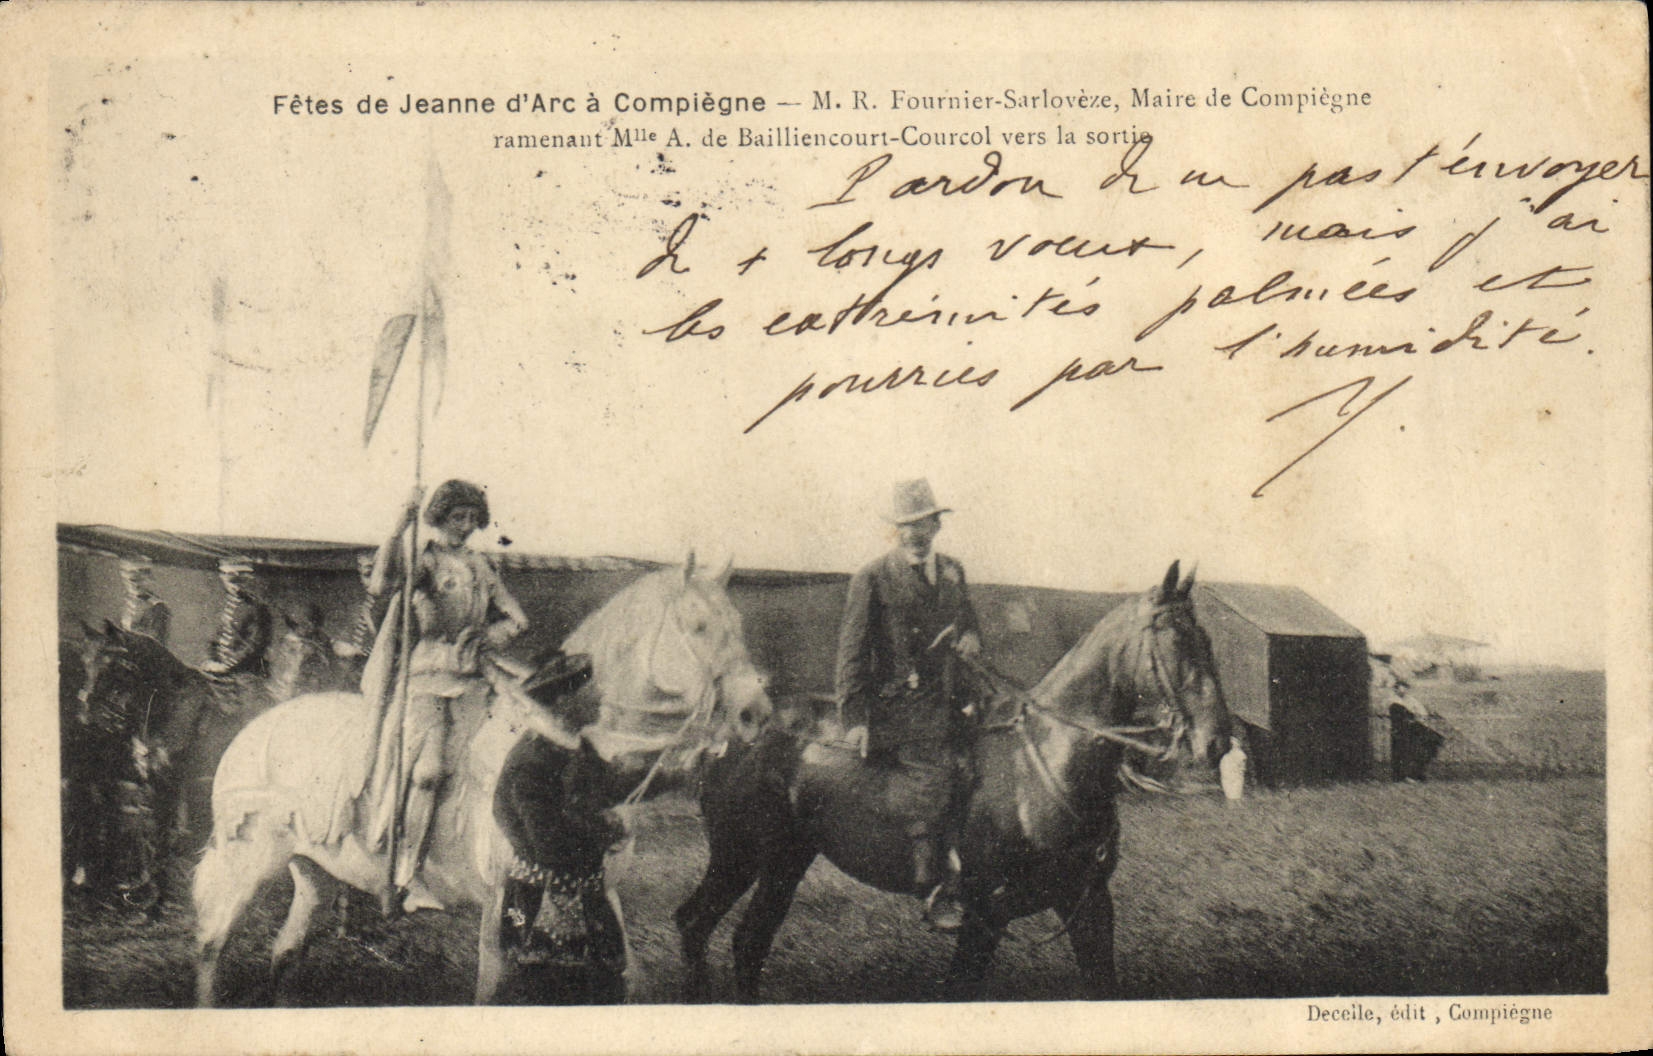 Fêtes de Jeanne d'Arc à Compiègne — M. R. Fournier-Sarlovèze, Maire de Compiègne
ramenant Mlle A. de Bailliencourt-Courcol vers la sortie
Pardon de ne pas t'envoyer
de + longs voeux, mais j'ai
les extrémités palmées et
pourries par l'humidité.
Y.
Decelle, édit, Compiègne